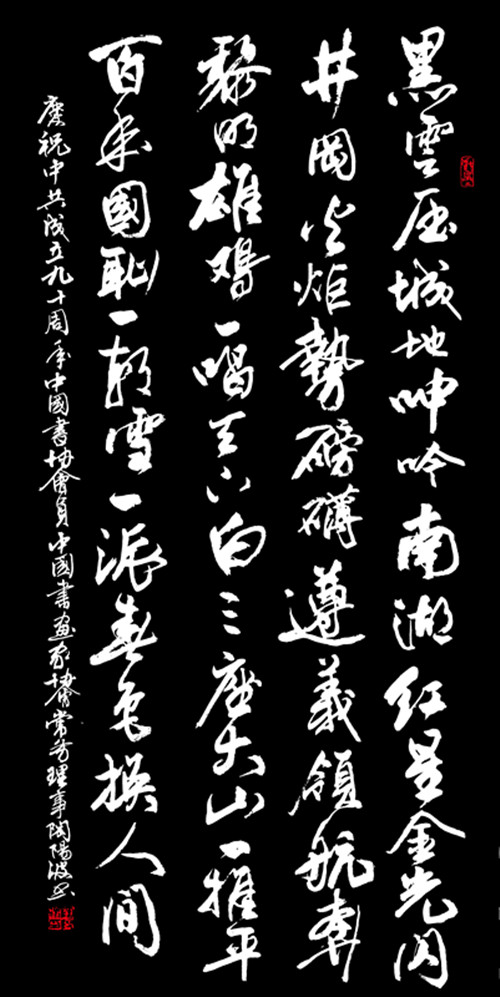 黑雲压城地呻吟南湖红星金光闪
井岡火炬勢磅礴遵義領航奔
黎明雄鸡一唱天下白三座大山一推平
百年國恥一朝雪一派春色換人间
庆祝中共成立九十周年中國書协會員中國書画家協會常务理事陶陽波书